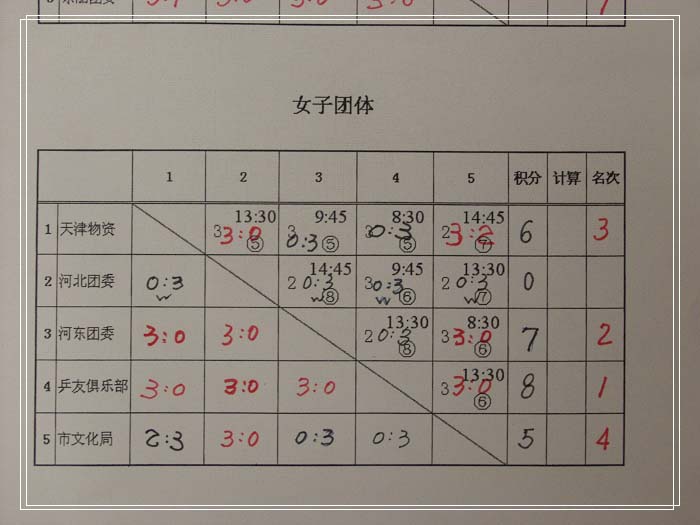 3:0 3:0 1
女子团体
1 2 3 4 5 积分 计算 名次
1 天津物资 3 13:30 3:0 ⑤ 3 9:45 0:3 ⑤ 3 8:30 0:3 ⑤ 2 14:45 3:2 ⑦ 6 3
2 河北团委 0:3 W 2 14:45 0:3 W ⑧ 3 9:45 0:3 W ⑥ 2 13:30 0:3 W ⑦ 0
3 河东团委 3:0 3:0 2 13:30 0:3 ⑧ 3 8:30 3:0 ⑥ 7 2
4 乒友俱乐部 3:0 3:0 3:0 3 13:30 3:0 ⑥ 8 1
5 市文化局 2:3 3:0 0:3 0:3 5 4